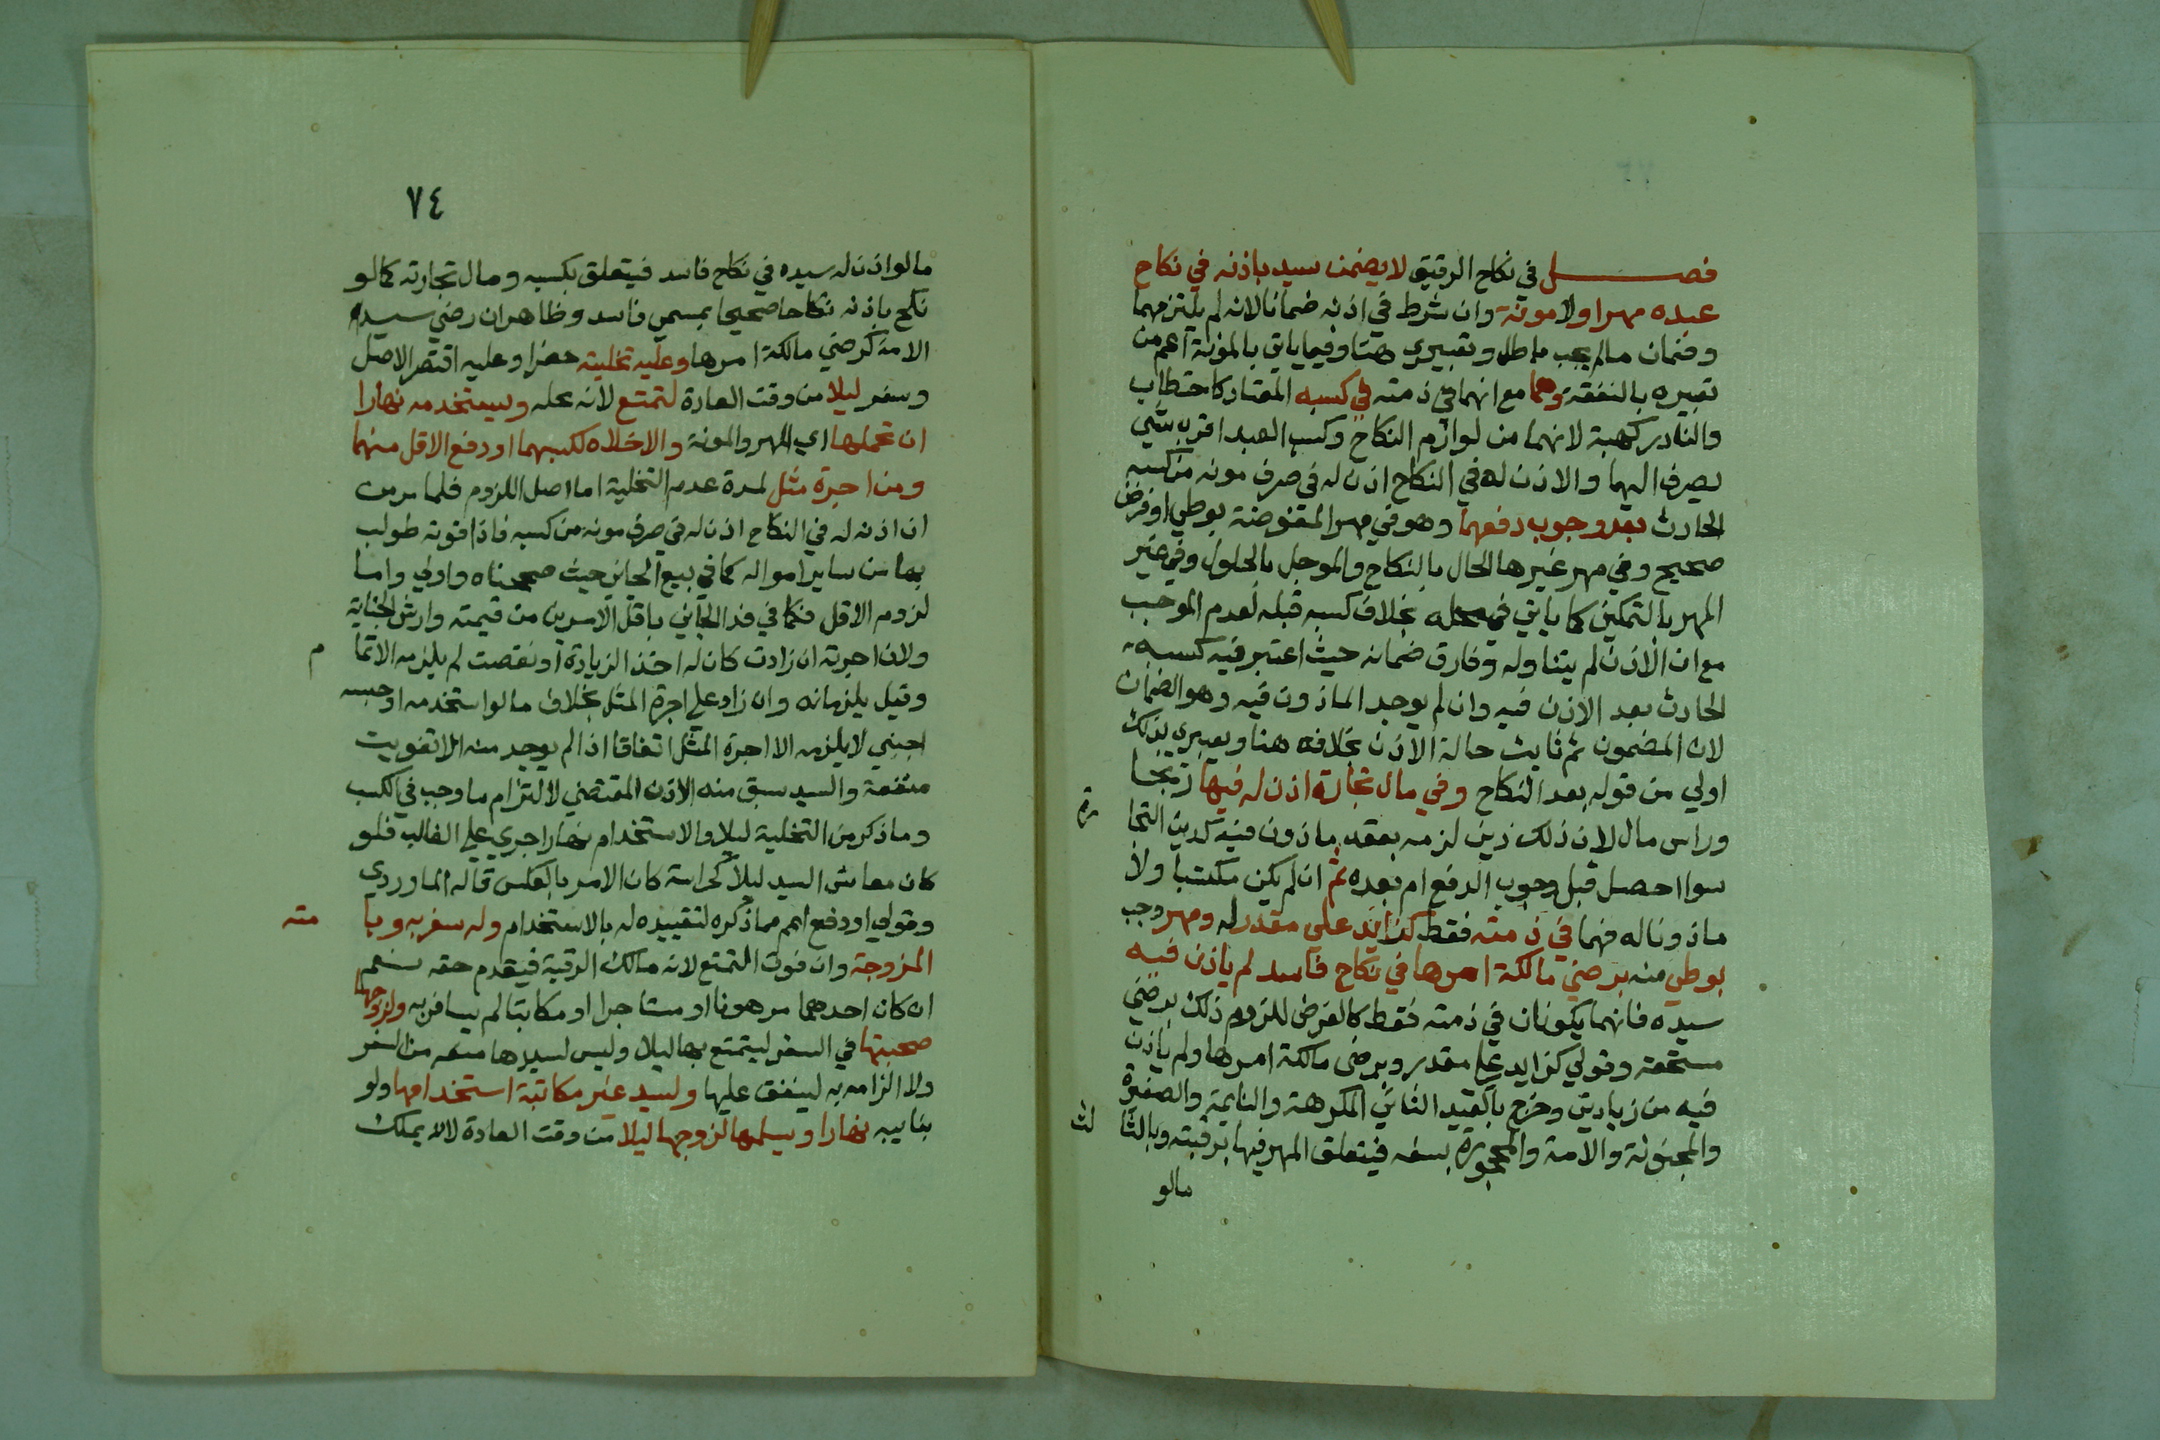 فصل في نكاح الرقيق لا يضمن سيد باذنه في نكاح
عبده مهرا ولا مونة وان شرط في اذنه ضمانا لانه لم يلتزمهما
وضمان مالم يجب باطل وتعبيري هنا وفيما ياتي بالمونة اعم من
تعبيره بالنفقة وهما مع انهما في ذمته في كسبه المعتاد كاحتطاب
والنادر كهبة لانهما من لوازم النكاح وكسب العبد اقرب شي
يصرف اليهما والاذن له في النكاح اذن له في صرف مونه من كسبه
الحادث بعد وجوب دفعهما وهو في مهر المفوضة بوطي او فرض
صحيح وفي مهر غيرها الحال بالنكاح والموجل بالحلول وفي غير
المهر بالتمكين كما ياتي في محله بخلاف كسبه قبله لعدم الموجب
مع ان الاذن لم يتناوله وفارق ضمانه حيث اعتبر فيه كسبه
الحادث بعد الاذن فيه وان لم يوجد الماذون فيه وهو الضمان
لان المضمون ثم ثابت حالة الاذن بخلافه هنا وتعبيري بذلك
اولي من قوله بعد النكاح وفي مال تجارة اذن له فيها ربحا
وراس مال لان ذلك دين لزمه بعقد ماذون فيه كدين التجا رة
سوا احصل قبل وجوب الدفع ام بعده ثم ان لم يكن مكتسبا ولا
ماذونا له فهما في ذمته فقط كزايد علي مقدر له ومهر وجب
بوطي منه برضي مالكة امرها في نكاح فاسد لم ياذن فيه
سيده فانهما يكونان في ذمته فقط كالقرض للزوم ذلك برضي
مستحقه وقولي كزايد علي مقدر وبرضى مالكة امرها ولم ياذن
فيه من زيادتي وخرج بالقيد الثاني المكرهة والنايمة والصغيرة
والمجنونة والامة والمحجورة بسفه فيتعلق المهر فيها برقبته وبالثا لث
مالو
٧٤
مالو اذن له سيده في نكاح فاسد فيتعلق بكسبه ومال تجارته كما لو
نكح باذنه نكاحا صحيحا بمسمي فاسد وظاهر ان رضي سيد
الامة كرضي مالكة امرها وعليه تخليته حضرا وعليه اقتصر الاصل
وسفرا ليلا من وقت العادة لتمتع لانه محله ويستخدمه نهارا
ان تحملها اي المهر والمونة والا خلاه لكسبهما او دفع الاقل منهما
ومن اجرة مثل لمدة عدم التخلية اما اصل اللزوم فلما مر من
ان اذنه له في النكاح اذن له في صرف مونه من كسبه فاذا فوته طولب
بها من ساير امواله كما في بيع الجاني حيث صححناه واولي واما
لزوم الاقل فكما في فدا الجاني باقل الامرين من قيمته وارش الجناية
ولان اجرته ان زادت كان له اخذ الزيادة او نقصت لم يلزمه الاتما م
وقيل يلزمانه وان زاد علي اجرة المثل بخلاف مالو استخدمه او حبسه
اجنبي لا يلزمه الا اجرة المثل اتفاقا اذا لم يوجد منه الا تفويت
منفعة والسيد سبق منه الاذن المقتضي لالتزام ما وجب في الكسب
وما ذكر من التخلية ليلا والاستخدام نهارا جري علي الغالب فلو
كان معاش السيد ليلا كحراسة كان الامر بالعكس قاله الماوردي
وقولي او دفع اعم مما ذكره لتقييده له بالاستخدام وله سفر به وبا مته
المزوجة وان فوت التمتع لانه مالك الرقبة فيقدم حقه نعم
ان كان احدهما مرهونا او مستاجرا او مكاتبا لم يسافر به ولزوجها
صحبتها في السفر ليتمتع بها ليلا وليس لسيدها منعه من السفر
ولا الزامه به لينفق عليها ولسيد غير مكاتبة استخدامها ولو
بنايبه نهارا ويسلمها لزوجها ليلا من وقت العادة لانه يملك